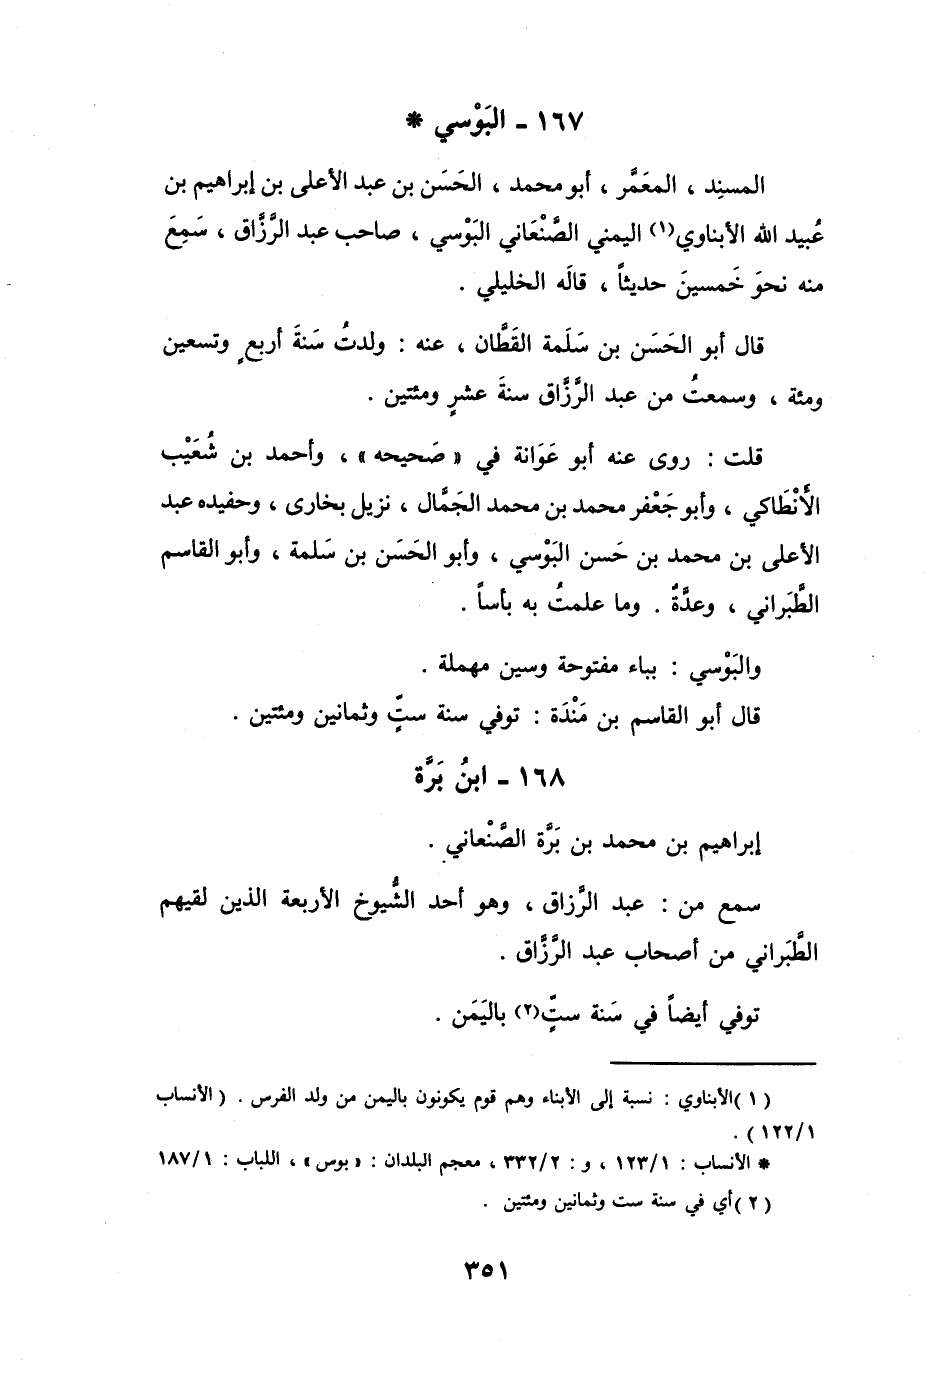 ١٦٧ - البَوْسي *
المسنِد ، المعَمَّر ، أبو محمد ، الحَسَن بن عبد الأعلى بن إبراهيم بن
عُبيد الله الأبناوي(١) اليمني الصَّنْعَاني البَوْسي ، صاحب عبد الرَّزَّاق ، سَمِعَ
منه نحوَ خَمسينَ حديثاً ، قالَه الخليلي .
قال أبو الحَسَن بن سَلَمة القَطَّان ، عنه : ولدتُ سَنةَ أربعٍ وتسعين
ومئة ، وسمعتُ من عبد الرَّزَّاق سنةَ عشرٍ ومئتين .
قلت : روى عنه أبو عَوَانة في « صَحيحه » ، وأحمد بن شُعَيْب
الأَنْطَاكي ، وأبو جَعْفر محمد بن محمد الجَمَّال ، نزيل بخارى ، وحفيده عبد
الأعلى بن محمد بن حَسن البَوْسي ، وأبو الحَسَن بن سَلمة ، وأبو القاسم
الطَّبَراني ، وعدَّةٌ . وما علمتُ به بأساً .
والبَوْسي : بباء مفتوحة وسين مهملة .
قال أبو القاسم بن مَنْدَة : توفي سنة ستٍّ وثمانين ومئتين .
١٦٨ - ابنُ بَرَّة
إبراهيم بن محمد بن بَرَّة الصَّنْعاني .
سمع من : عبد الرَّزاق ، وهو أحد الشُّيوخ الأربعة الذين لقيهم
الطَّبَراني من أصحاب عبد الرَّزَّاق .
توفي أيضاً في سَنة ستٍّ(٢) باليَمَن .
( ١ )الأبناوي : نسبة إلى الأبناء وهم قوم يكونون باليمن من ولد الفرس . ( الأنساب
١٢٢/١ ) .
* الأنساب : ١٢٣/١ ، و : ٣٣٢/٢ ، معجم البلدان : « بوس » ، اللباب : ١٨٧/١
( ٢ )أي في سنة ست وثمانين ومئتين .
٣٥١